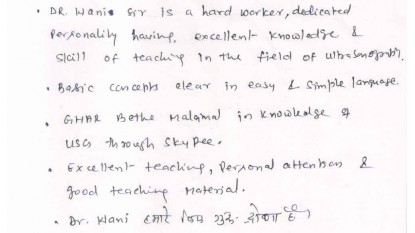 • DR. Wani sir is a hard worker, dedicated
Personality having, excellent knowledge &
skill of teaching in the field of ultrasonography.
• Basic concepts clear in easy & simple language.
• GHAR Bethe Malamal in knowledge of
USG through SkyPee.
• Excellent teaching, Personal attention &
good teaching Material.
• Dr. Wani हमारे लिए गुरू